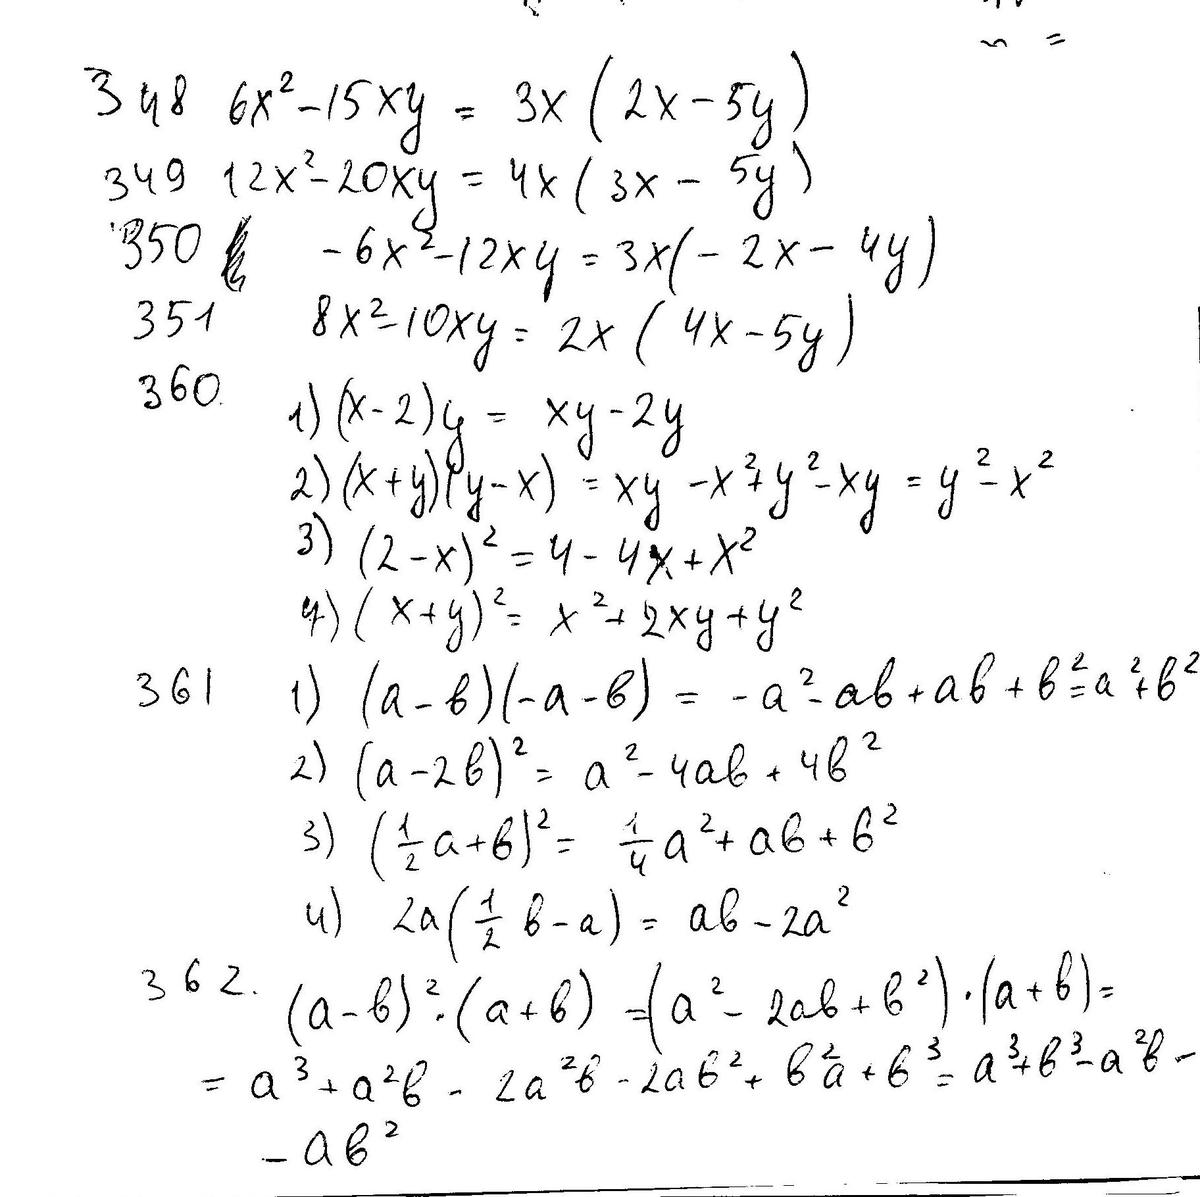 n =
348 6x² - 15xy = 3x (2x - 5y)
349 12x² - 20xy = 4x (3x - 5y)
350 - 6x² - 12xy = 3x(- 2x - 4y)
351 8x² - 10xy = 2x (4x - 5y)
360. 1) (x - 2)y = xy - 2y
2) (x + y)(y - x) = xy - x² + y² - xy = y² - x²
3) (2 - x)² = 4 - 4x + x²
4) (x + y)² = x² + 2xy + y²
361 1) (a - b)(-a - b) = - a² - ab + ab + b² = a² + b²
2) (a - 2b)² = a² - 4ab + 4b²
3) (1/2 a + b)² = 1/4 a² + ab + b²
4) 2a(1/2 b - a) = ab - 2a²
362. (a - b)² · (a + b) = (a² - 2ab + b²) · (a + b) =
= a³ + a²b - 2a²b - 2ab² + b²a + b³ = a³ + b³ - a²b -
- ab²